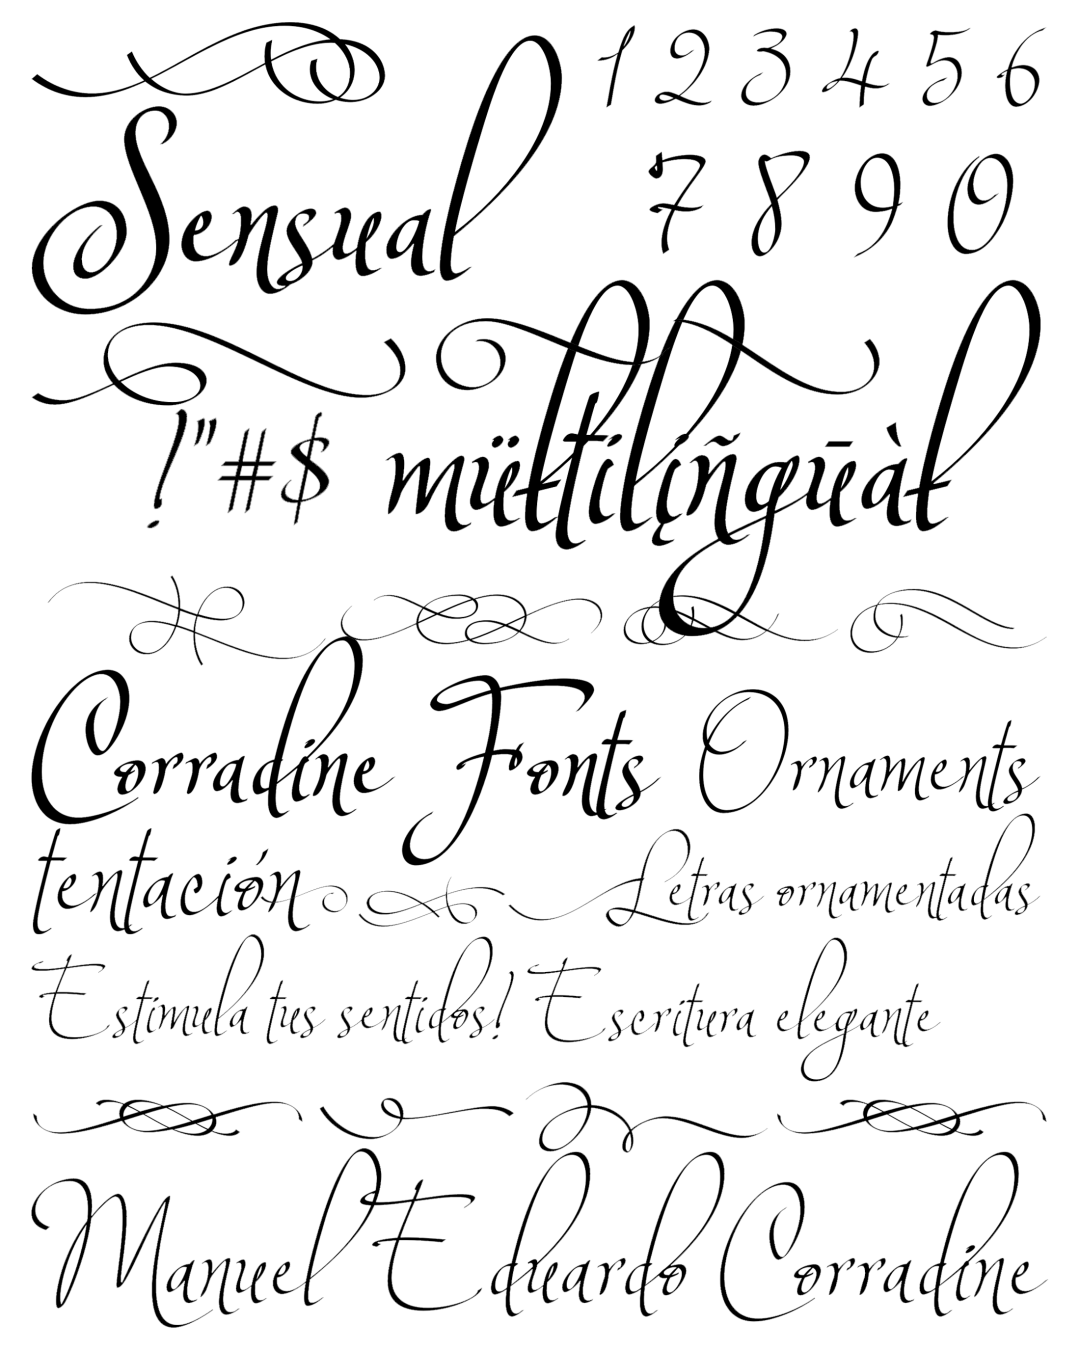 Sensual
1 2 3 4 5 6
7 8 9 0
!"#$ mültilįñgūàl
Corradine Fonts Ornaments
tentación Letras ornamentadas
Estimula tus sentidos! Escritura elegante
Manuel Eduardo Corradine